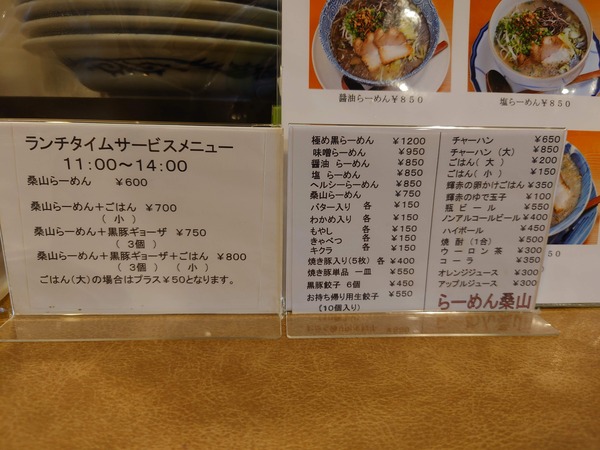 醤油らーめん¥850
塩らーめん¥850
ランチタイムサービスメニュー
11:00〜14:00
桑山らーめん ¥600
桑山らーめん+ごはん ¥700
(小)
桑山らーめん+黒豚ギョーザ ¥750
(3個)
桑山らーめん+黒豚ギョーザ+ごはん ¥800
(3個) (小)
ごはん(大)の場合はプラス¥50となります。
極め黒らーめん ¥1200
味噌らーめん ¥950
醤油 らーめん ¥850
塩 らーめん ¥850
ヘルシーらーめん ¥850
桑山らーめん ¥750
バター入り 各 ¥150
わかめ入り 各 ¥150
もやし 各 ¥150
きゃべつ 各 ¥150
キクラ 各 ¥150
焼き豚入り(5枚) 各 ¥400
焼き豚単品 一皿 ¥550
黒豚餃子 6個 ¥450
お持ち帰り用生餃子 ¥550
(10個入り)
チャーハン ¥650
チャーハン(大) ¥850
ごはん(大) ¥200
ごはん(小) ¥150
輝赤の卵かけごはん ¥350
輝赤のゆで玉子 ¥100
瓶ビール ¥550
ノンアルコールビール ¥400
ハイボール ¥450
焼酎(1合) ¥500
ウーロン茶 ¥300
コーラ ¥350
オレンジジュース ¥300
アップルジュース ¥300
らーめん桑山
50